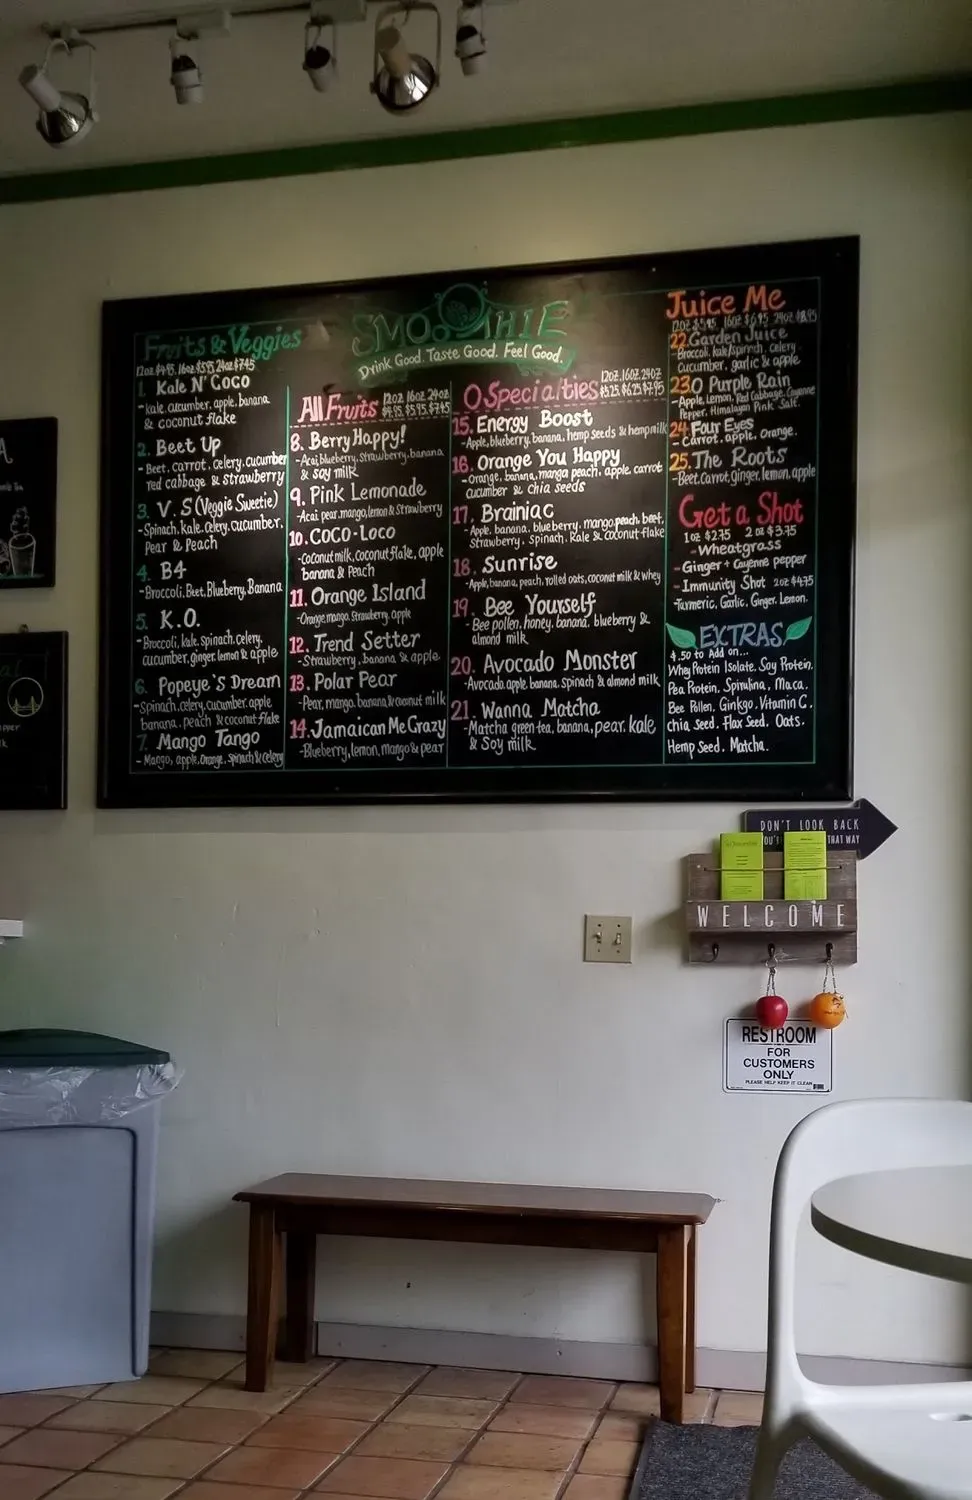 SMOOTHIE
Drink Good. Taste Good. Feel Good.
Fruits & Veggies
12oz $4.95. 16oz $5.95 24oz $7.45
1. Kale N' Coco
-kale, cucumber, apple, banana
& coconut flake
2. Beet Up
-Beet, carrot, celery, cucumber
red cabbage & strawberry
3. V.S (Veggie Sweetie)
-Spinach, kale, celery, cucumber,
Pear & Peach
4. B4
-Broccoli, Beet, Blueberry, Banana
5. K.O.
-Broccoli, kale, spinach, celery,
cucumber, ginger, lemon & apple
6. Popeye's Dream
-Spinach, celery, cucumber, apple
banana, peach & coconut flake
7. Mango Tango
-Mango, apple, Orange, spinach & celery
All Fruits
12oz 16oz 24oz
$4.95 $5.95 $7.45
8. Berry Happy!
-Acai, blueberry, strawberry, banana
& soy milk
9. Pink Lemonade
-Acai, pear, mango, lemon & Strawberry
10. COCO-LOCO
-coconut milk, coconut flake, apple
banana & Peach
11. Orange Island
-Orange, mango, Strawberry, apple
12. Trend Setter
-Strawberry, banana & apple
13. Polar Pear
-Pear, mango, banana & coconut milk
14. Jamaican Me Crazy
-Blueberry, lemon, mango & pear
O Specialties
12oz. 16oz. 24oz
$5.25 $6.25 $7.95
15. Energy Boost
-Apple, blueberry, banana, hemp Seeds & hempmilk
16. Orange You Happy
-Orange, banana, manga peach, apple, carrot
cucumber & chia seeds
17. Brainiac
-Apple, banana, blueberry, mango, peach, beet,
Strawberry, Spinach, Kale & Coconut flake
18. Sunrise
-Apple, banana, peach, rolled oats, coconut milk & whey
19. Bee Yourself
-Bee pollen, honey, banana, blueberry &
almond milk
20. Avocado Monster
-Avocado, apple, banana, spinach & almond milk
21. Wanna Matcha
-Matcha green tea, banana, pear, kale
& Soy milk
Juice Me
12oz $5.95 16oz $6.95 24oz $8.95
22. Garden Juice
Broccoli, kale/spinach, celery
cucumber, garlic & apple
23. O Purple Rain
-Apple, Lemon, Red Cabbage, Cayenne
Pepper, Himalayan Pink Salt.
24. Four Eyes
-Carrot, apple, Orange.
25. The Roots
-Beet, Carrot, ginger, lemon, apple
Get a Shot
1oz $2.75 2oz $3.75
-Wheatgrass
-Ginger + Cayenne pepper
-Immunity Shot 2oz $4.75
-Turmeric, Garlic, Ginger, Lemon.
EXTRAS
$.50 to Add on...
Whey Protein Isolate, Soy Protein,
Pea Protein, Spirulina, Maca,
Bee Pollen, Ginkgo, Vitamin C,
chia seed, Flax Seed, Oats,
Hemp Seed, Matcha.
DON'T LOOK BACK
THAT WAY
WELCOME
RESTROOM
FOR
CUSTOMERS
ONLY
PLEASE HELP KEEP IT CLEAN